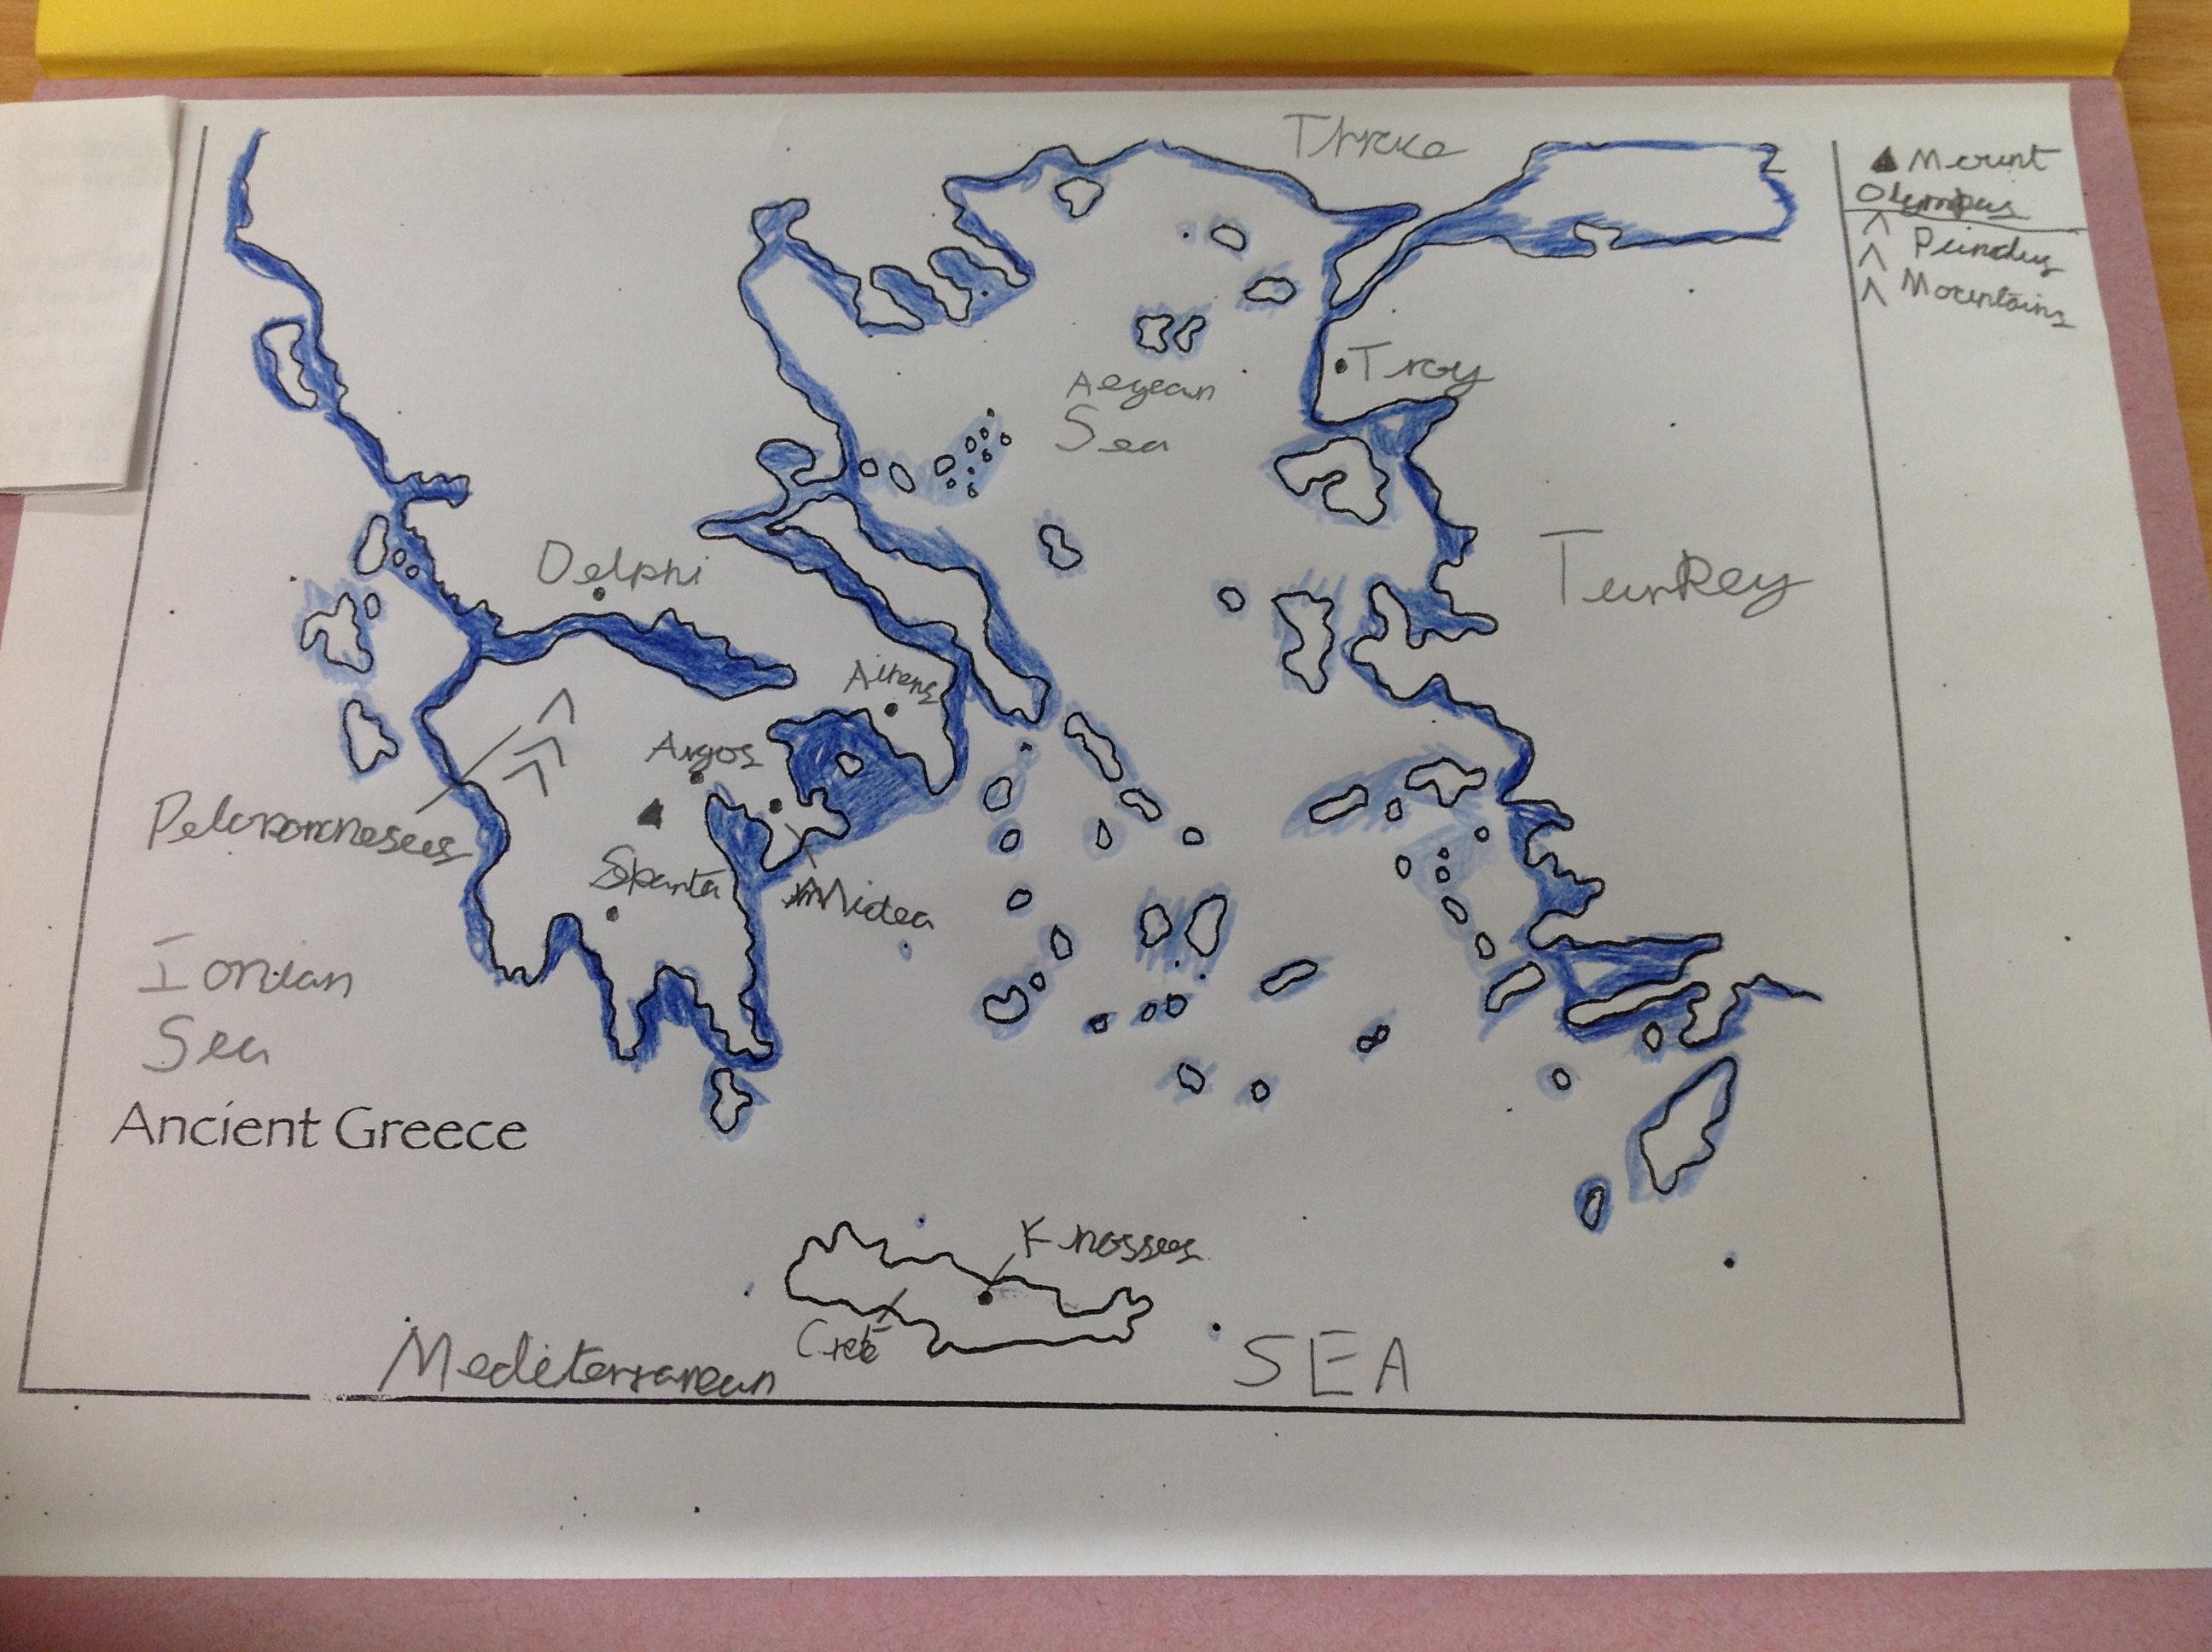 Thrace
Mount
Olympus
Pindus
Mountains
Troy
Aegean
Sea
Turkey
Delphi
Athens
Argos
Peloponnesus
Sparta
Midea
Ionian
Sea
Ancient Greece
Knossus
Crete
Mediterranean
SEA